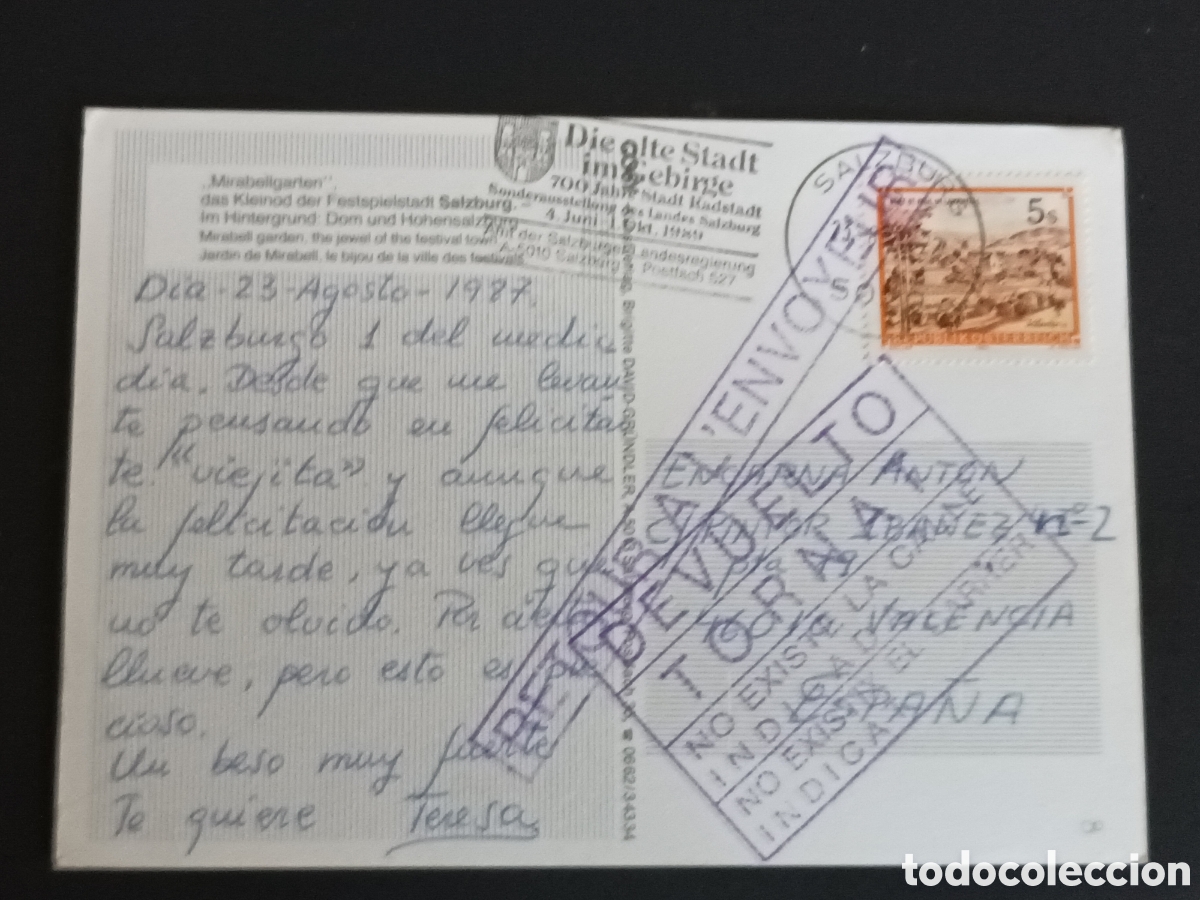 „Mirabellgarten”,
das Kleinod der Festspielstadt Salzburg. –
Im Hintergrund: Dom und Hohensalzburg
Mirabell garden, the jewel of the festival town
Jardin de Mirabell, le bijou de la ville des festivals
Die alte Stadt
im Gebirge
700 Jahre Stadt Radstadt
Sonderausstellung des Landes Salzburg
4. Juni-1. Okt. 1989
Amt der Salzburger Landesregierung
A-5010 Salzburg Postfach 527
SALZBURG
5s
REPUBLIK ÖSTERREICH
Dia-23 Agosto-1987.
Salzburgo 1 del media
dia. Desde que me levan
te pensando en felicitar
te "viejita" y aunque
la felicitación llegue
muy tarde, ya ves que
no te olvido. Por
llueve, pero esto es
cioso.
Un beso muy fuerte
Te quiere Teresa
Brigitte DAVID-GRÜNDLER, A-50
☎ 0662/34334
ENCARNA ANTON
IBAÑEZ nº-2
VALENCIA
ESPAÑA
RETOUR A L'ENVOYEUR
DEVUELTO
TORNAT
NO EXISTE LA CALLE
INDICADA
NO EXISTEIX EL CARRER
INDICAT
todocoleccion